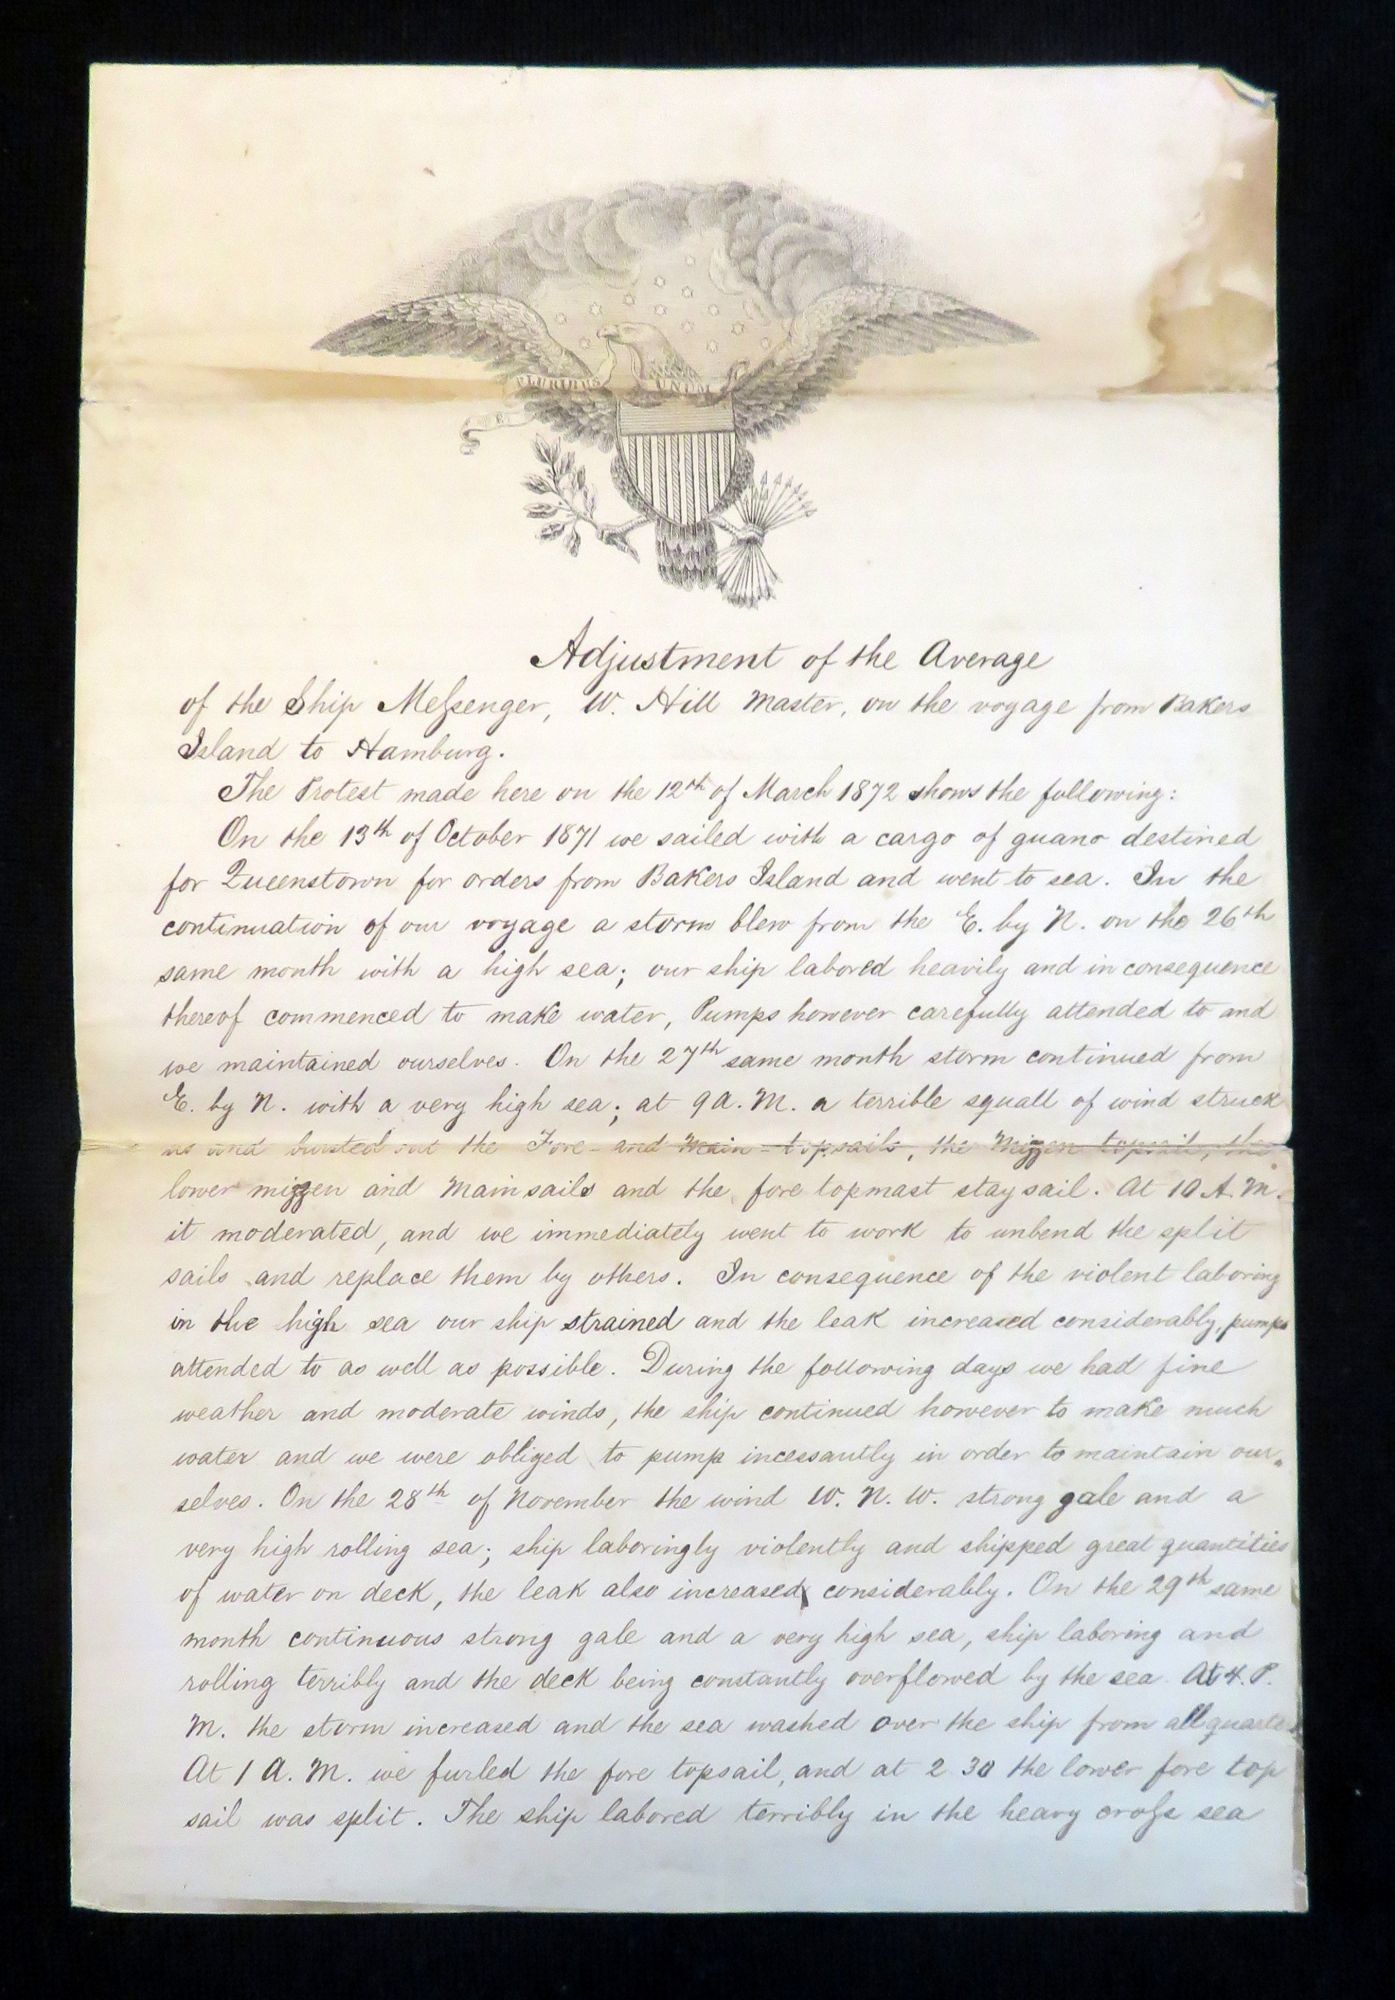 PLURIBUS UNUM
E
Adjustment of the Average
of the Ship Messenger, W. Hill Master, on the voyage from Bakers
Island to Hamburg.
The Protest made here on the 12th of March 1872 shows the following:
On the 13th of October 1871 we sailed with a cargo of guano destined
for Queenstown for orders from Bakers Island and went to sea. In the
continuation of our voyage a storm blew from the E. by N. on the 26th
same month with a high sea; our ship labored heavily and in consequence
thereof commenced to make water, Pumps however carefully attended to and
we maintained ourselves. On the 27th same month storm continued from
E. by N. with a very high sea; at 9 A. M. a terrible squall of wind struck
us and bursted out the Fore- and Main-topsails, the Mizzen topsail, the
lower mizzen and Main sails and the fore topmast stay sail. At 10 A. M.
it moderated, and we immediately went to work to unbend the split
sails and replace them by others. In consequence of the violent laboring
in the high sea our ship strained and the leak increased considerably, pumps
attended to as well as possible. During the following days we had fine
weather and moderate winds, the ship continued however to make much
water and we were obliged to pump incessantly in order to maintain our=
selves. On the 28th of November the wind W. N. W. strong gale and a
very high rolling sea; ship laboringly violently and shipped great quantities
of water on deck, the leak also increased considerably. On the 29th same
month continuous strong gale and a very high sea, ship laboring and
rolling terribly and the deck being constantly overflowed by the sea. At 4. P.
M. the storm increased and the sea washed over the ship from all quarte
At 1 A. M. we furled the fore topsail, and at 2 30 the lower fore top
sail was split. The ship labored terribly in the heavy cross sea